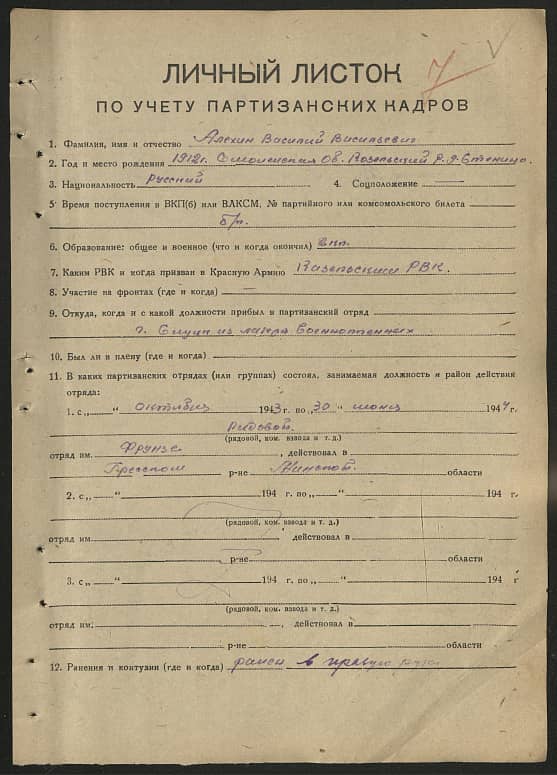 ЛИЧНЫЙ ЛИСТОК
ПО УЧЕТУ ПАРТИЗАНСКИХ КАДРОВ
1. Фамилия, имя и отчество Алехин Василий Васильевич
2. Год и место рождения 1912г. Смоленская Об. Козельский р. д. Стеницо
3. Национальность русский 4. Соцположение
5 Время поступления в ВКП(б) или ВЛКСМ, № партийного или комсомольского билета
б/п.
6. Образование: общее и военное (что и когда окончил)
7. Каким РВК и когда призван в Красную Армию Козельским РВК.
8. Участие на фронтах (где и когда)
9. Откуда, когда и с какой должности прибыл в партизанский отряд
г. Слуцк из лагеря Военнопленных
10. Был ли в плену (где и когда)
11. В каких партизанских отрядах (или группах) состоял, занимаемая должность и район действия
отряда:
1. с „ “ октября 1943 г. по „30 “ июня 1944 г.
Рядовой.
(рядовой, ком. взвода и т. д.)
отряд им. Фрунзе , действовал в
Гресском р-не Минской области
2. с „ “ 194 г. по „ “ 194 г.
(рядовой, ком. взвода и т. д.)
отряд им. , действовал в
р-не области
3. с „ “ 194 г. по „ “ 194 г
(рядовой, ком. взвода и т. д.)
отряд им. , действовал в
р-не области
12. Ранения и контузии (где и когда) ранен в правую руку